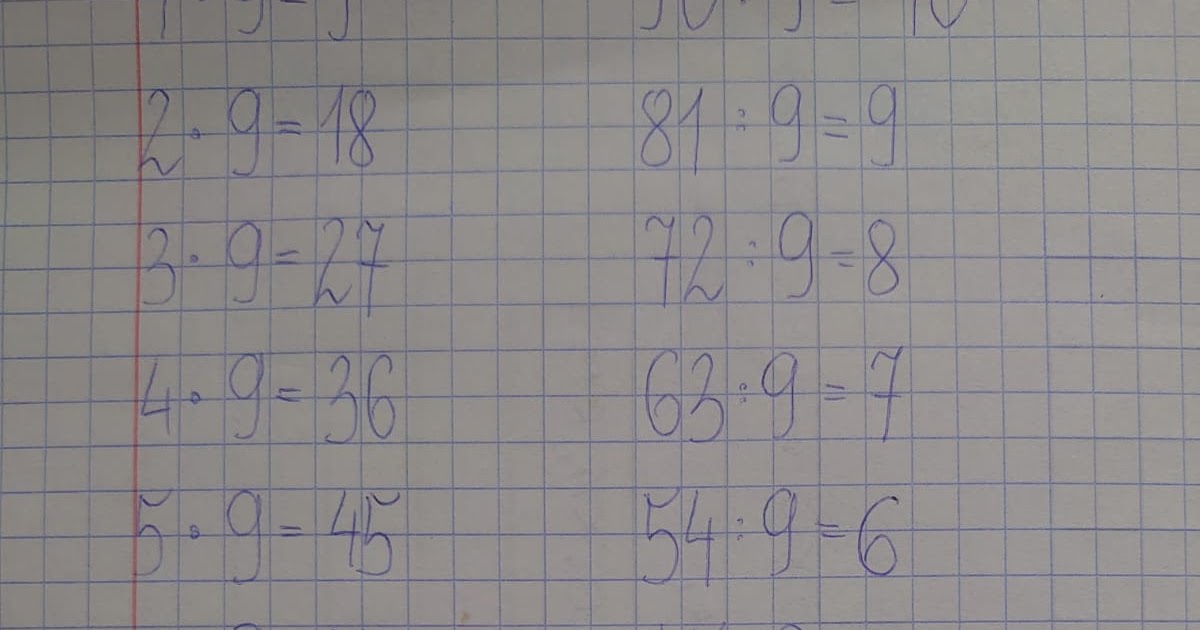 1 · 9 = 9 90 : 9 = 10
2 · 9 = 18 81 : 9 = 9
3 · 9 = 27 72 : 9 = 8
4 · 9 = 36 63 : 9 = 7
5 · 9 = 45 54 : 9 = 6